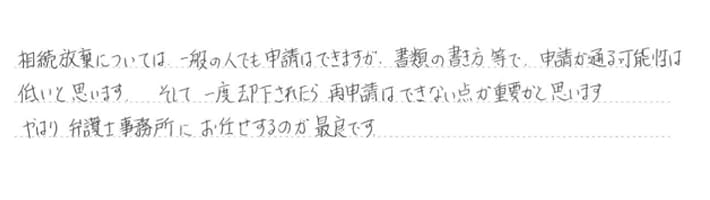 相続放棄については、一般の人でも申請はできますが、書類の書き方等で、申請が通る可能性は
低いと思います。 そして一度却下されたら再申請はできない点が重要かと思います
やはり弁護士事務所にお任せするのが最良です